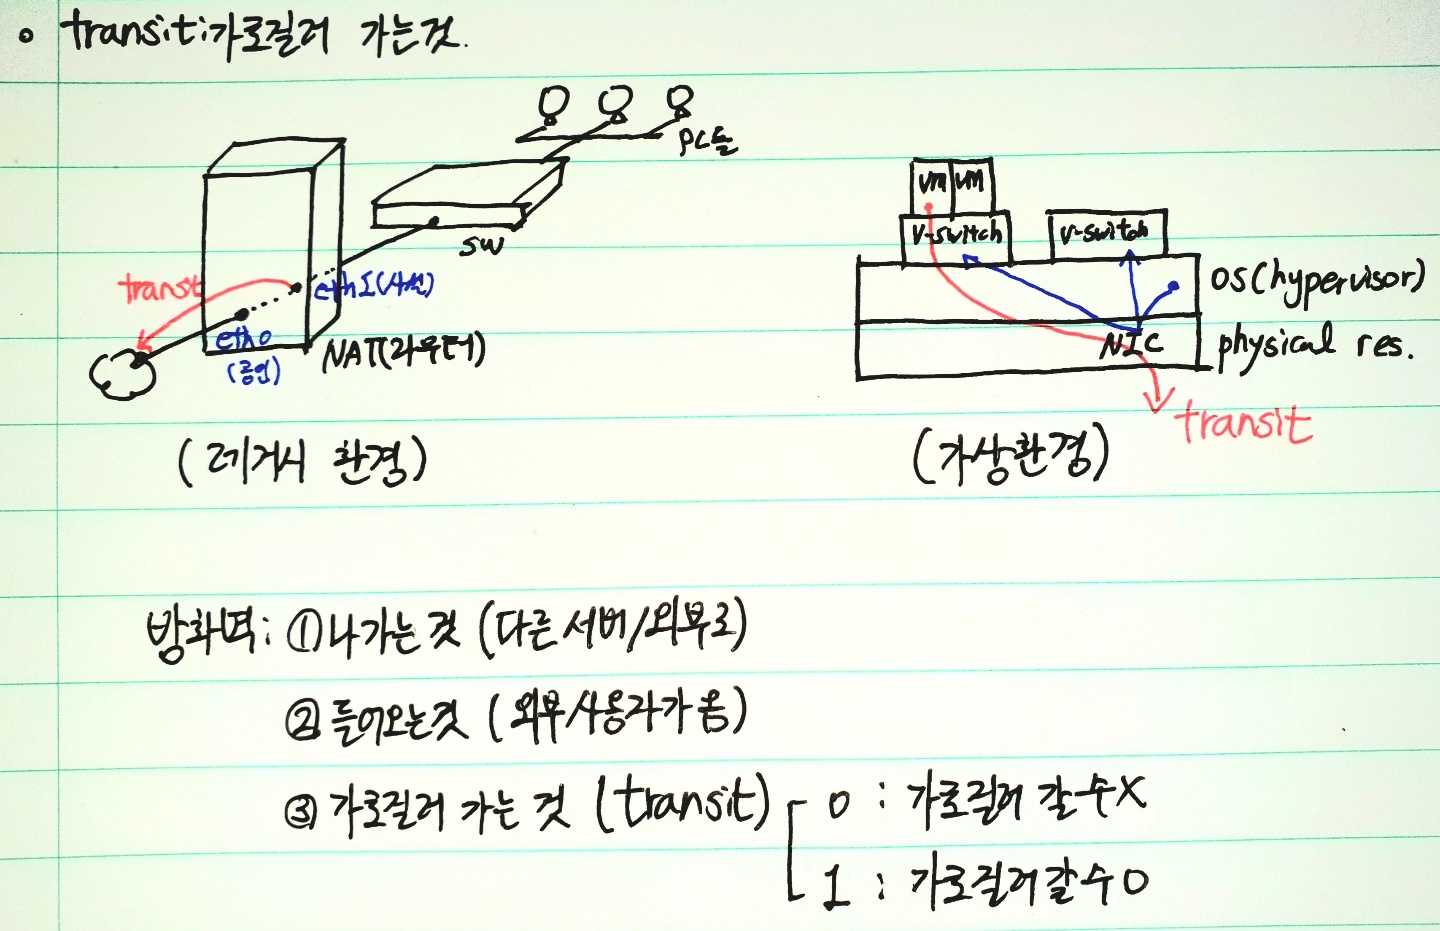 ◦ transit:가로질러 가는것.
PC들
SW
transt
eth1(사설)
eth0
(공인)
NAT(라우터)
(레거시 환경)
VM VM
V-switch
V-switch
OS(hypervisor)
NIC
physical res.
transit
(가상환경)
방화벽: ①나가는 것 (다른 서버/외부로)
②들어오는것 (외부사용자가 옴)
③ 가로질러 가는 것 (transit)
0 : 가로질러 갈수X
1 : 가로질러갈수O